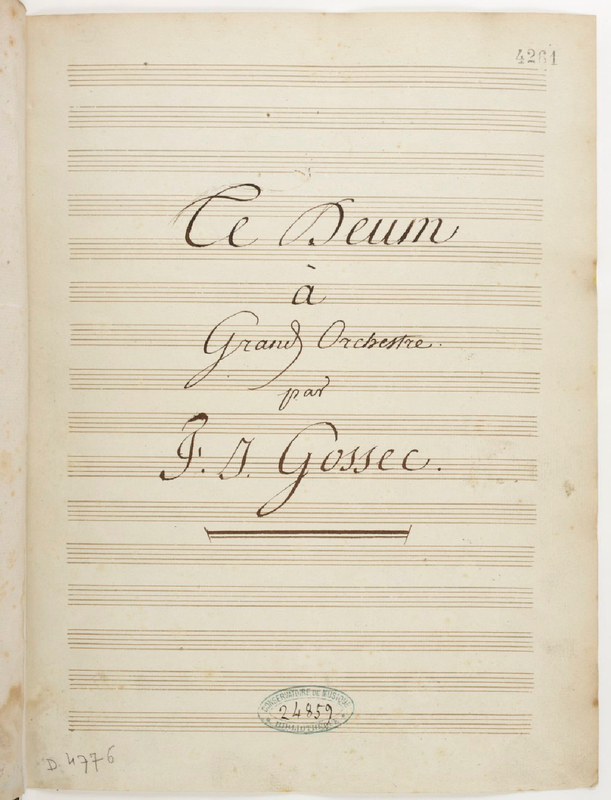 4261
Te Deum
à
Grand Orchestre.
par
F. J. Gossec.
CONSERVATOIRE DE MUSIQUE
24859
BIBLIOTHÈQUE
D. 4776